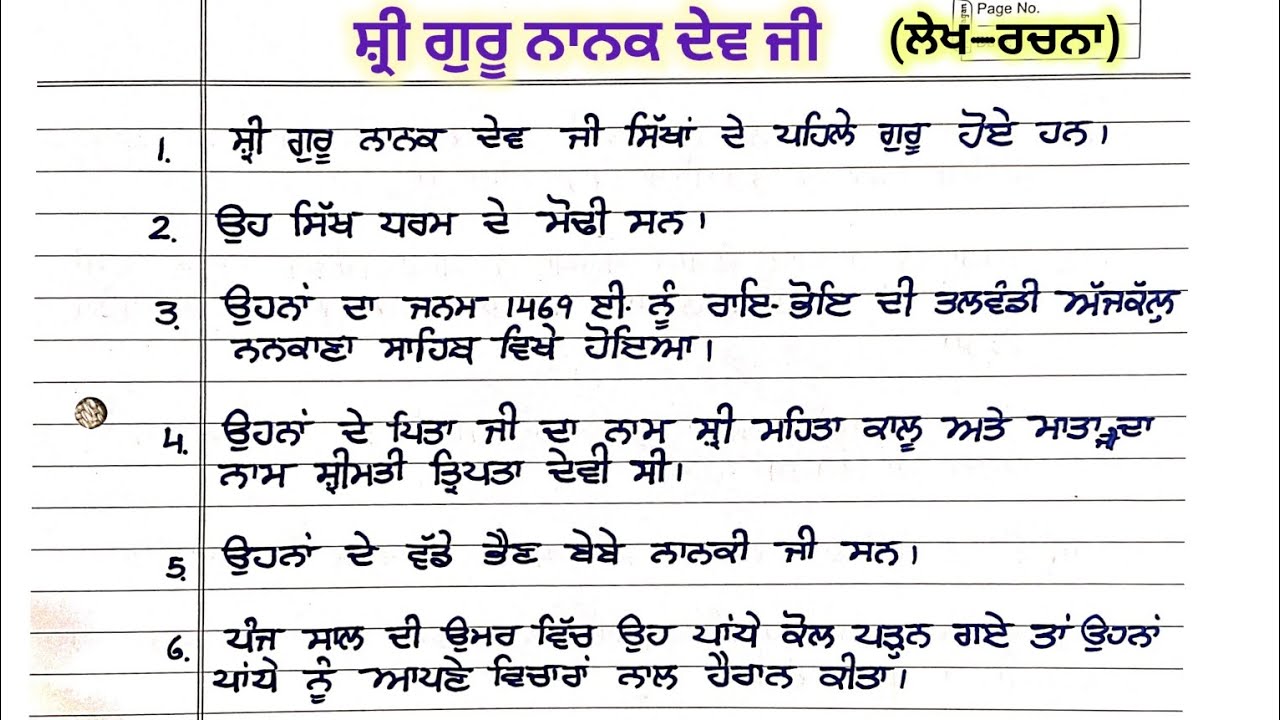 Page No.
ਸ਼੍ਰੀ ਗੁਰੂ ਨਾਨਕ ਦੇਵ ਜੀ (ਲੇਖ-ਰਚਨਾ)
1. ਸ਼੍ਰੀ ਗੁਰੂ ਨਾਨਕ ਦੇਵ ਜੀ ਸਿੱਖਾਂ ਦੇ ਪਹਿਲੇ ਗੁਰੂ ਹੋਏ ਹਨ।
2. ਉਹ ਸਿੱਖ ਧਰਮ ਦੇ ਮੋਢੀ ਸਨ।
3. ਉਹਨਾਂ ਦਾ ਜਨਮ 1469 ਈ. ਨੂੰ ਰਾਇ-ਭੋਇ ਦੀ ਤਲਵੰਡੀ ਅੱਜਕੱਲ੍ਹ
ਨਨਕਾਣਾ ਸਾਹਿਬ ਵਿਖੇ ਹੋਇਆ।
4. ਉਹਨਾਂ ਦੇ ਪਿਤਾ ਜੀ ਦਾ ਨਾਮ ਸ਼੍ਰੀ ਮਹਿਤਾ ਕਾਲੂ ਅਤੇ ਮਾਤਾ ਦਾ
ਨਾਮ ਸ਼੍ਰੀਮਤੀ ਤ੍ਰਿਪਤਾ ਦੇਵੀ ਸੀ।
5. ਉਹਨਾਂ ਦੇ ਵੱਡੇ ਭੈਣ ਬੇਬੇ ਨਾਨਕੀ ਜੀ ਸਨ।
6. ਪੰਜ ਸਾਲ ਦੀ ਉਮਰ ਵਿੱਚ ਉਹ ਪਾਂਧੇ ਕੋਲ ਪੜ੍ਹਨ ਗਏ ਤਾਂ ਉਹਨਾਂ
ਪਾਂਧੇ ਨੂੰ ਆਪਣੇ ਵਿਚਾਰਾਂ ਨਾਲ ਹੈਰਾਨ ਕੀਤਾ।